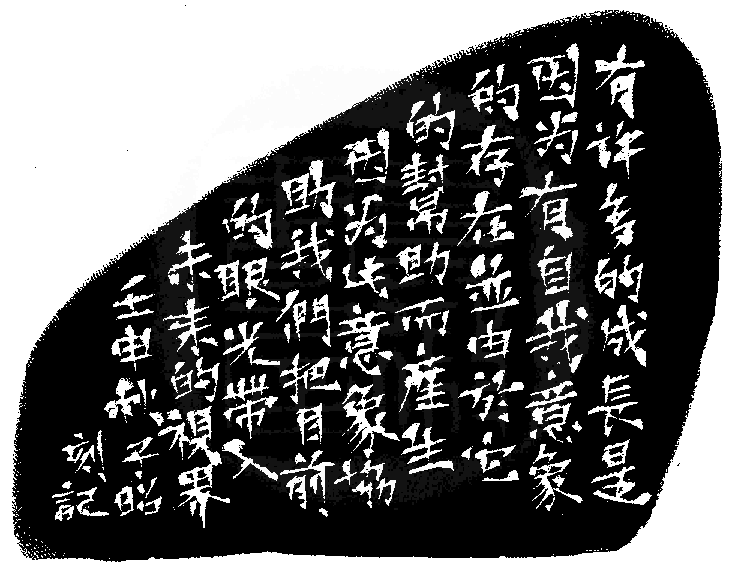 有許多的成長是
因为有自我意象
的存在並由於它
的幫助而產生
因为此意象協
助我們把目前
的眼光帶入
未来的視界
壬申秋 子昭
刻記